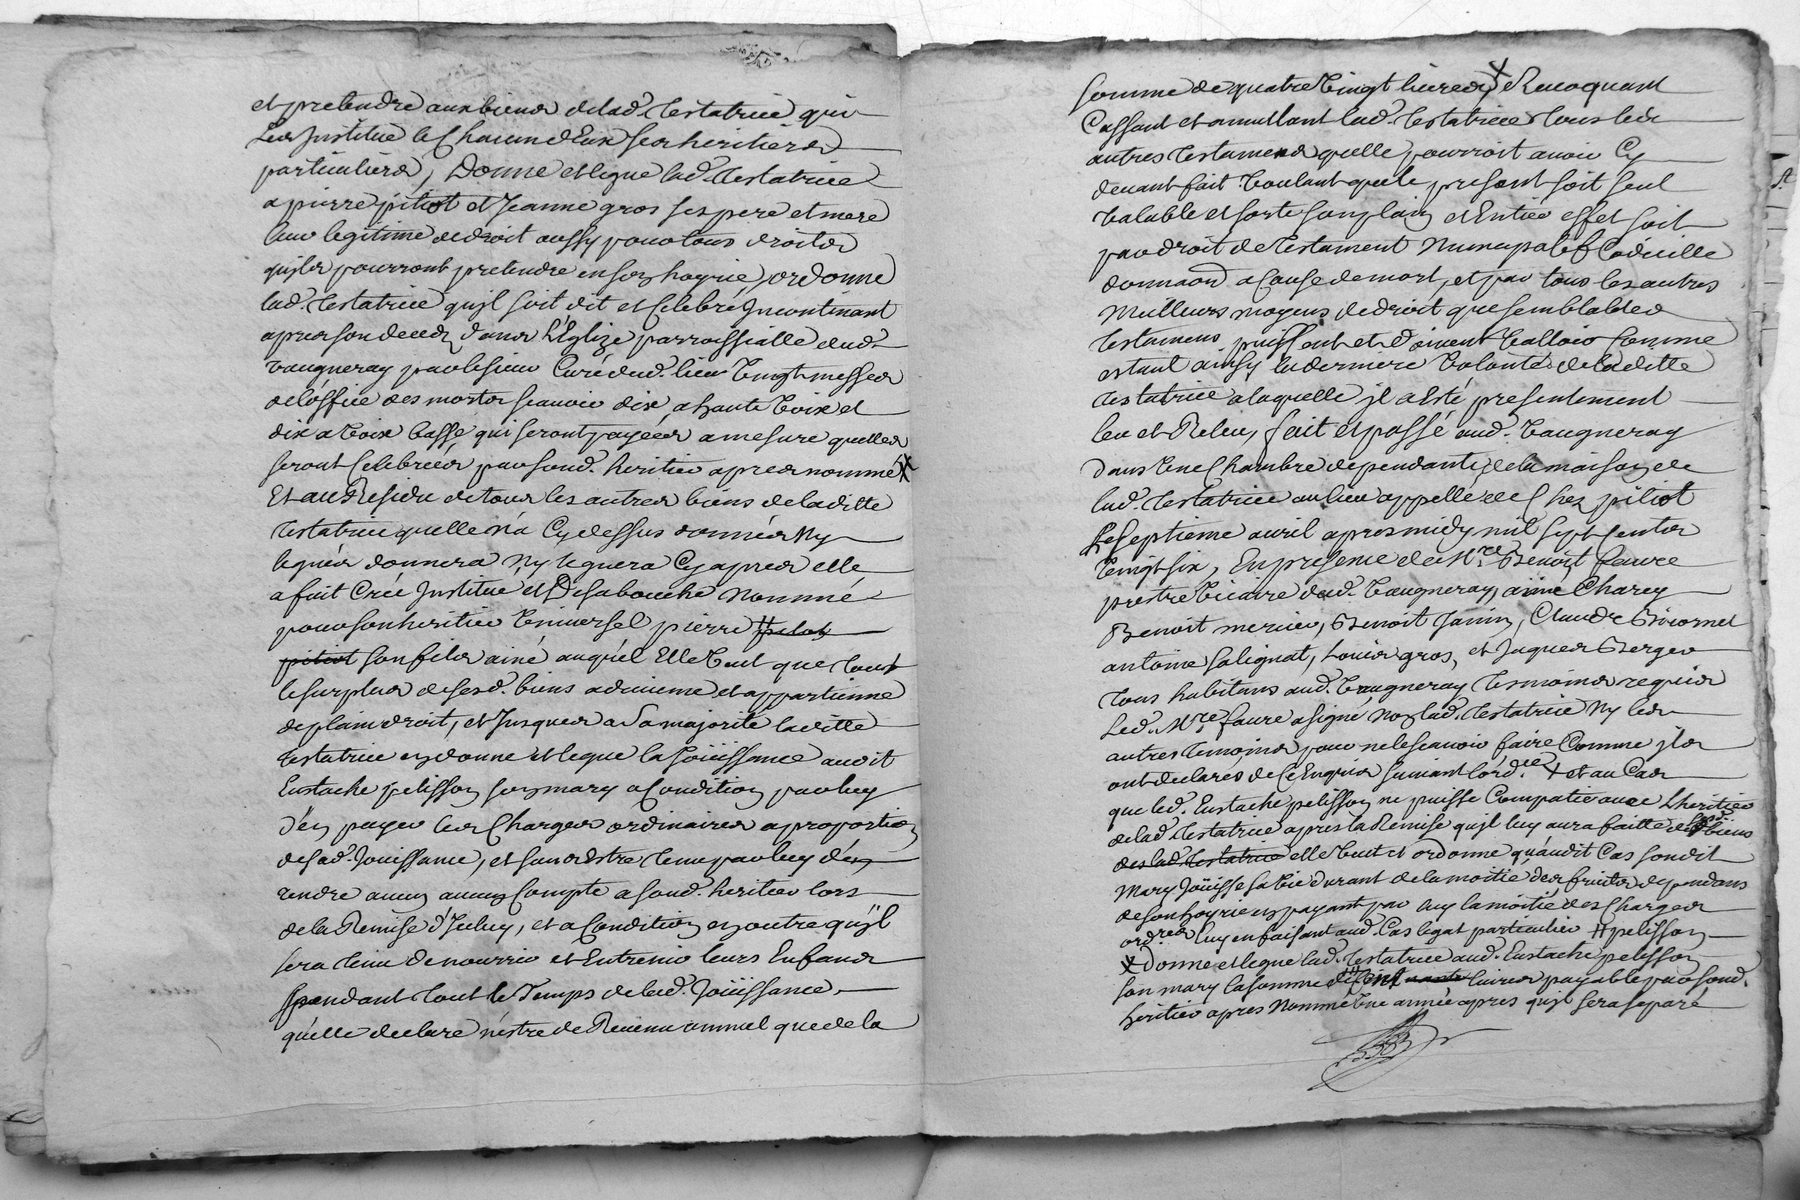 et pretendre aux biens de lad. testatrice qui
les Institue et Chacun d'Eux ses heritiers
particuliers, Donne et legue lad. testatrice
a pierre pitiot et Jeanne gros ses pere et mere
leur legitime de droit aussy pour tous droits
quils pourront pretendre en son hoyrie, ordonne
lad. testatrice qujl soit dit et Celebré Jncontinant
apres son deced dans L'Eglize parroissialle dud.
vaugneray par le sieur Curé dud. lieu Vingt messes
de lóffice des morts scauoir dix a haute Voix et
dix a Voix basse qui seront payées a mesure quelles
seront Celebrées par sond. heritier apres nommé X
Et au Residu de tous les autres biens de laditte
testatrice quelle n'a Cy dessus donnés Ny
legués donnera Ny leguera Cy apres elle
a fait Créé Jnstitué et De sa bouche Nommé
pour son heritier Vniversel pierre # pelot
pitiot son fils ainé auquel Elle Veut que tout
le surplus de sesd. biens advienne et appartienne
de plain droit, et Jusques a Sa majorité laditte
testatrice en donne et legue la Joüissance audit
Eustache pelisson son mary a Condition par luy
d'en payer les Charges ordinaires a proportion
de sad. Joüissance, et sans estre tenu par luy d'en
rendre aucun aucun Compte a sond. heritier lors
de la Remise d'Jceluy, et a Condition en outre qu'jl
sera tenu de nourrir et Entretenir leurs Enfans
pendant tout le Temps de lad. Joüissance,
qu'elle declare n'estre de Reuenu annuel que de la
somme de quatre Vingt liures X Reuoquant
Cassant et annullant lad. testatrice tous les
autres testamens quelle pourroit auoir Cy
deuant fait Voulant que le present soit seul
Valable et sorte son plain et Entier effet soit
par droit de testament Nuncupatif Codicille
donnaon a Cause de mort, et par tous les autres
Meilleurs moyens de droit que semblables
testamens puissent et doivent Valloir Comme
estant ainsy la derniere Volonté de laditte
testatrice a laquelle jl a Esté presentement
leu et Releu, fait et passé aud. Vaugneray
dans Vne Chambre dependante de la maison de
lad. testatrice au lieu appellé de Chez pitiot
Le septieme auril apres midy mil sept Cents
Vingt six, En presence de Mre. Benoist faure
prestre Vicaire dud. Vaugneray, aimé Charey
Benoit mercier, Benoit Janin, Claude Briornet
antoine salignat, Louis gros, et Jaques Berger
tous habitans aud. Vaugneray tesmoins requis
Led. Mre faure a signé Non lad. testatrice Ny les
autres temoins pour ne le scauoir faire Comme jls
ont declarés de Ce Enquis suiuant lord.ce X et au Cas
que led. Eustache pelisson ne puisse Compatir auec L'heritier
de lad. testatrice apres la Remise qu'jl luy aura faitte desd. biens
des lad. testatrice elle Veut et ordonne qu'audit Cas sondit
Mary Joüisse sa Vie durant de la moitié des fruits dependans
de son hoyrie en payant par luy la moitié des Charges
ord.res Luy en faisant aud. Cas legat particulier # pelisson
X donne et legue lad. testatrice aud. Eustache pelisson
son mary la somme de Cent liures payable par sond.
heritier apres Nommé Vne année apres qu'jl sera separé